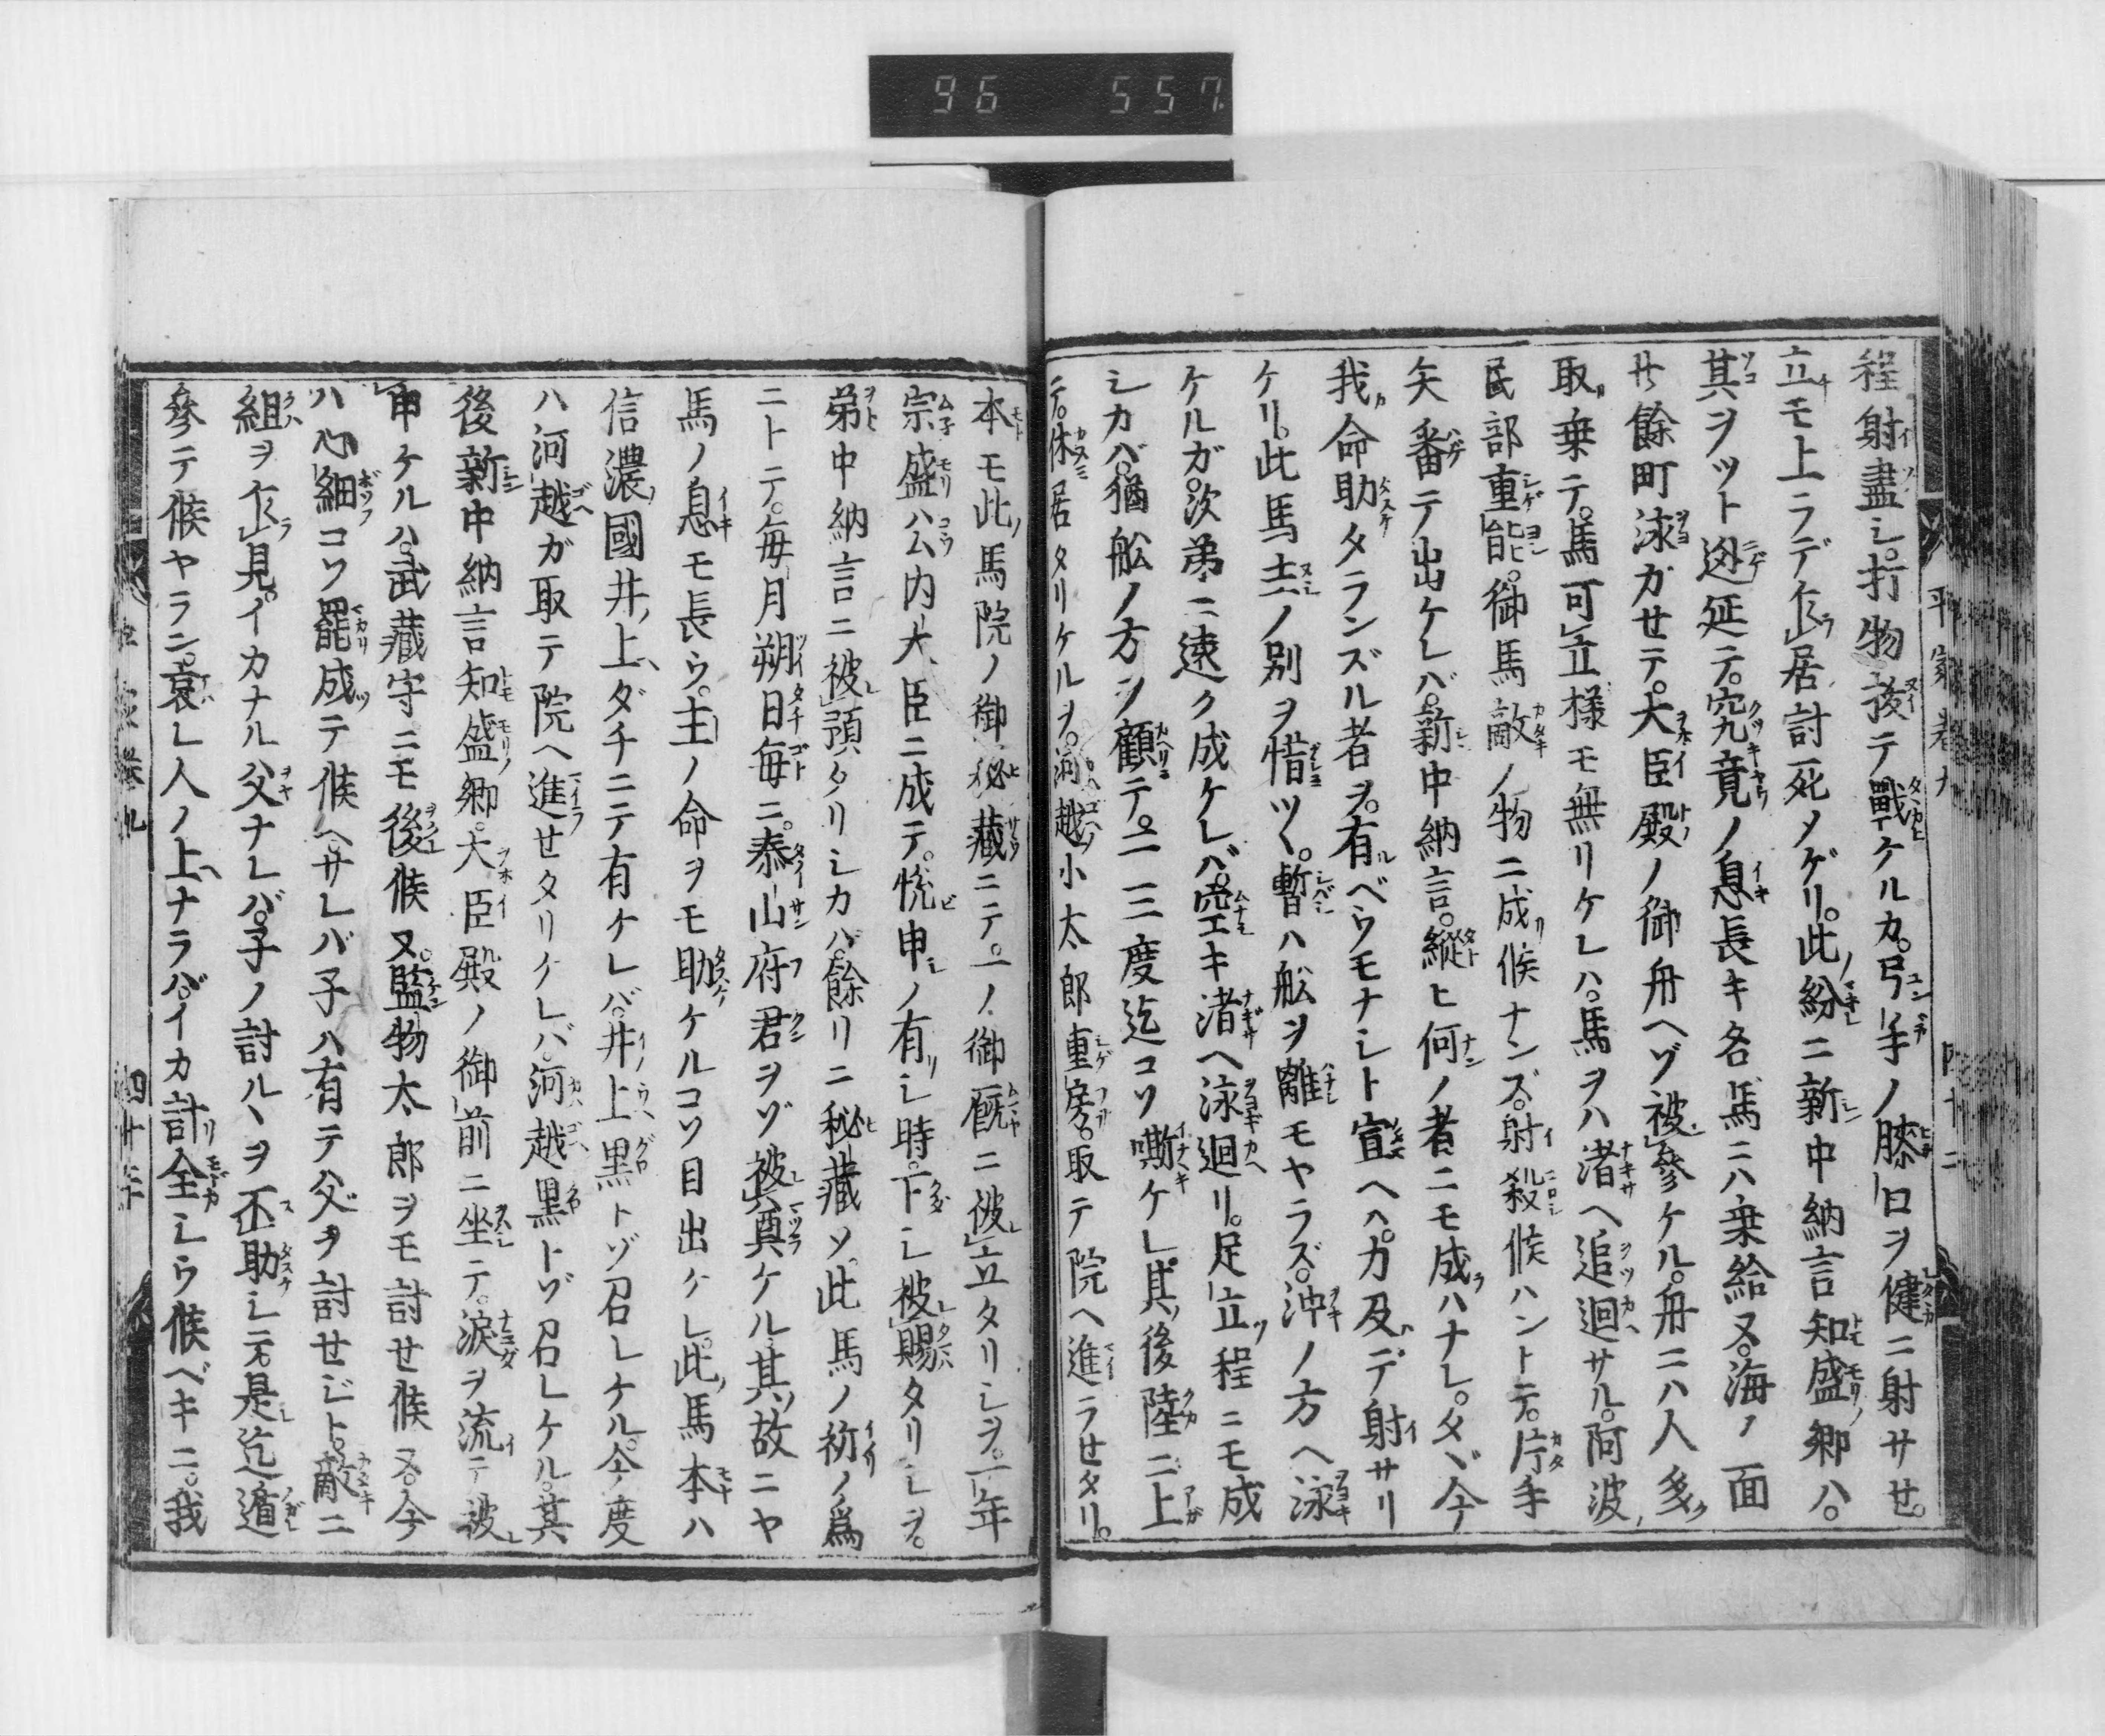 96 557
平家巻九
程射盡シ。打物抜テ戰ケルカ。弓手ノ膝口ヲ健ニ射サセ。
立モ上ラデ乍居討死ソゲリ。此紛ニ新中納言知盛卿ハ。
其ヲツト迯延テ。究竟ノ息長キ名馬ニハ乗給ヌ。海ノ面
廿餘町泳ガせテ。大臣殿ノ御舟ヘゾ被參ケル。舟ニハ人多
取乗テ。馬可立様モ無リケレハ。馬ヲハ渚ヘ追廻サル。阿波
民部重能。御馬敵ノ物ニ成候ナンズ。射殺候ハントテ。片手
矢番テ出ケレバ。新中納言。縱ヒ何ノ者ニモ成ハナレ。タヾ今
我命助タランズル者ヲ。有ベウモナシト宣ヘハ。力及デ射サリ
ケリ。此馬主ノ別ヲ惜ツヽ。暫ハ舩ヲ離モヤラズ。沖ノ方ヘ泳
ケルガ。次第ニ速ク成ケレバ。空キ渚ヘ泳廻リ。足立程ニモ成
シカバ。猶舩ノ方ヲ顧テ。二三度迄コソ嘶ケレ。其後陸ニ上
テ。休居タリケルヲ。河越小太郎重房。取テ院ヘ進ラせタリ。
本モ此馬院ノ御秘藏ニテ。一ノ御厩ニ被立タリシヲ。一年
宗盛公内大臣ニ成テ。悦申ノ有シ時。下シ被賜タリシヲ。
弟中納言ニ被預タリシカバ。餘リニ秘藏ソ。此馬ノ祈ノ爲
ニトテ。毎月朔日毎ニ。泰山府君ヲゾ被奠ケル。其故ニヤ
馬ノ息モ長ウ。主ノ命ヲモ助ケルコソ目出ケレ。此馬本ハ
信濃國井上ダチニテ有ケレバ。井上黒トゾ召レケル。今度
ハ河越ガ取テ院ヘ進せタリケレバ。河越黒トゾ召レケル。其
後新中納言知盛卿。大臣殿ノ御前ニ坐テ。涙ヲ流テ被
申ケルハ。武藏守ニモ後候ヌ。監物太郎ヲモ討せ候ヌ。今
ハ心細コソ罷成テ候ヘ。サレバ子ハ有テ父ヲ討せジト。敵ニ
組ヲ乍見。イカナル父ナレバ。子ノ討ルヽヲ不助シテ。是迄遁
參テ候ヤラン。哀レ人ノ上ナラバ。イカ計全シウ候ベキニ。我